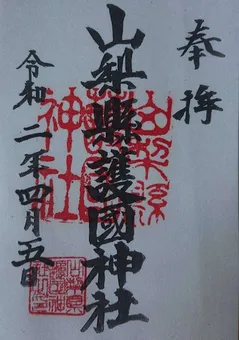 奉拝
山梨縣護國神社
令和二年四月五日
山梨縣
護國
神社